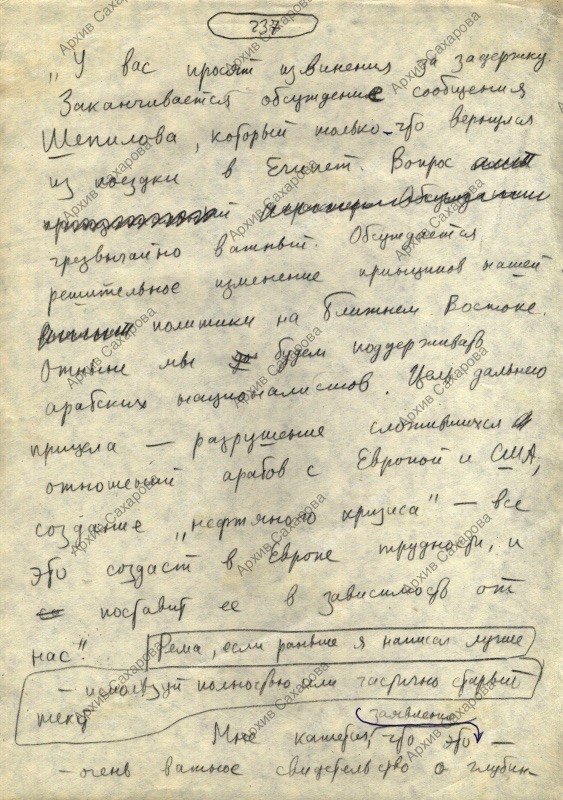 237
„У вас просят извинения за задержку.
Заканчивается обсуждение сообщения
Шепилова, который только-что вернулся
из поездки в Египет. Вопрос
чрезвычайно важный. Обсуждается
решительное изменение принципов нашей
политики на Ближнем Востоке.
Отныне мы будем поддерживать
арабских националистов. Цель дальнего
прицела — разрушение сложившихся
отношений арабов с Европой и США,
создание „нефтяного кризиса" — все
это создаст в Европе трудности, и
поставит ее в зависимость от
нас". Рема, если раньше я написал лучше
— используй полностью или частично старый
текст
заявление
Мне кажется, что это —
— очень важное свидетельство о глубин-
Архив Сахарова